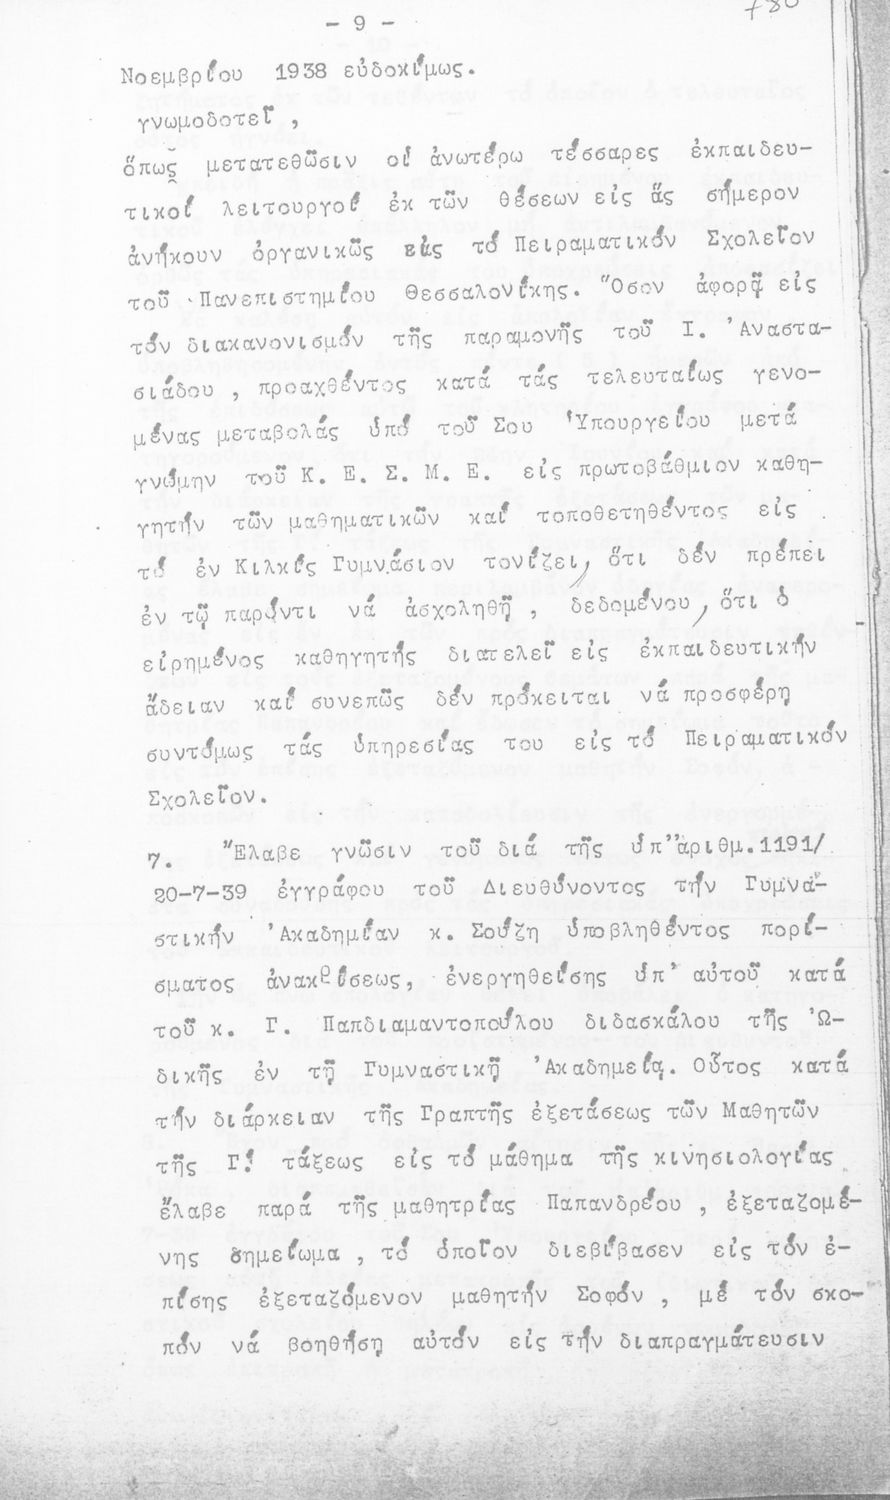 - 9 -
780
Νοεμβρίου 1938 εὐδοκίμως.
γνωμοδοτεῖ ,
ὅπως μετατεθῶσιν οἱ ἀνωτέρω τέσσαρες ἐκπαιδευ-
τικοί λειτουργοί ἐκ τῶν θέσεων εἰς ἅς σήμερον
ἀνήκουν ὀργανικῶς εἰς τό Πειραματικόν Σχολεῖον
τοῦ Πανεπιστημίου Θεσσαλονίκης. Ὅσον ἀφορᾷ εἰς
τόν διακανονισμόν τῆς παραμονῆς τοῦ Ι. Ἀναστα-
σιάδου , προαχθέντος κατά τάς τελευταίως γενο-
μένας μεταβολάς ὑπό τοῦ Σου Ὑπουργείου μετά
γνώμην τοῦ Κ. Ε. Σ. Μ. Ε. εἰς πρωτοβάθμιον καθη-
γητήν τῶν μαθηματικῶν καί τοποθετηθέντος εἰς
τό ἐν Κιλκίς Γυμνάσιον τονίζει, ὅτι δέν πρέπει
ἐν τῷ παρόντι νά ἀσχοληθῇ , δεδομένου, ὅτι ὁ
εἰρημένος καθηγητής διατελεῖ εἰς ἐκπαιδευτικήν
ἄδειαν καί συνεπῶς δέν πρόκειται νά προσφέρῃ
συντόμως τάς ὑπηρεσίας του εἰς τό Πειραματικόν
Σχολεῖον.
7. Ἔλαβε γνῶσιν τοῦ διά τῆς ὑπ"ἀριθμ.1191/
20-7-39 ἐγγράφου τοῦ Διευθύνοντος τήν Γυμνα-
στικήν Ἀκαδημίαν κ. Σούζη ὑποβληθέντος πορί-
σματος ἀνακρίσεως, ἐνεργηθείσης ὑπ' αὐτοῦ κατά
τοῦ κ. Γ. Παπδιαμαντοπούλου διδασκάλου τῆς Ὠ-
δικῆς ἐν τῇ Γυμναστικῇ Ἀκαδημείᾳ. Οὗτος κατά
τήν διάρκειαν τῆς Γραπτῆς ἐξετάσεως τῶν Μαθητῶν
τῆς Γ! τάξεως εἰς τό μάθημα τῆς κινησιολογίας
ἔλαβε παρά τῆς μαθητρίας Παπανδρέου , ἐξεταζομέ-
νης σημείωμα , τό ὁποῖον διεβίβασεν εἰς τόν ἐ-
πίσης ἐξεταζόμενον μαθητήν Σοφόν , μέ τόν σκο-
πόν νά βοηθήσῃ αὐτόν εἰς τήν διαπραγμάτευσιν